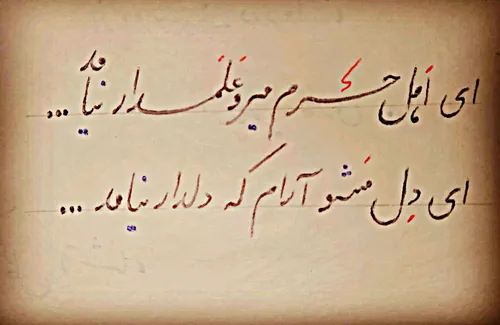 ای اَهل حَرم میر و عَلَمدار نیامد ...
ای دِل مَشو آرام که دلدار نیامد ...